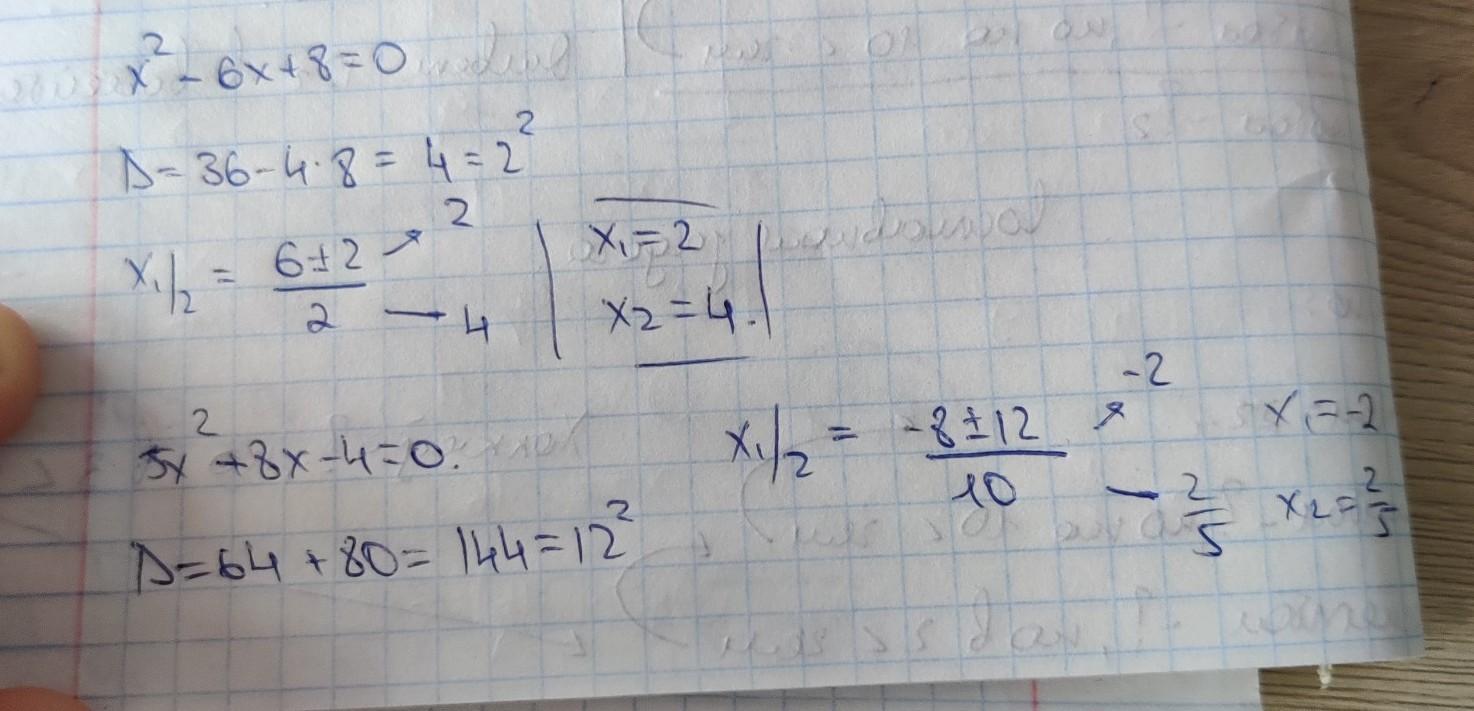 x² - 6x + 8 = 0
D = 36 - 4·8 = 4 = 2²
x₁/₂ = (6 ± 2)/2 ↗ 2 — 4 | x₁ = 2
x₂ = 4. |
5x² + 8x - 4 = 0.
D = 64 + 80 = 144 = 12²
x₁/₂ = (-8 ± 12)/10 ↗ -2 — 2/5
x₁ = -2
x₂ = 2/5